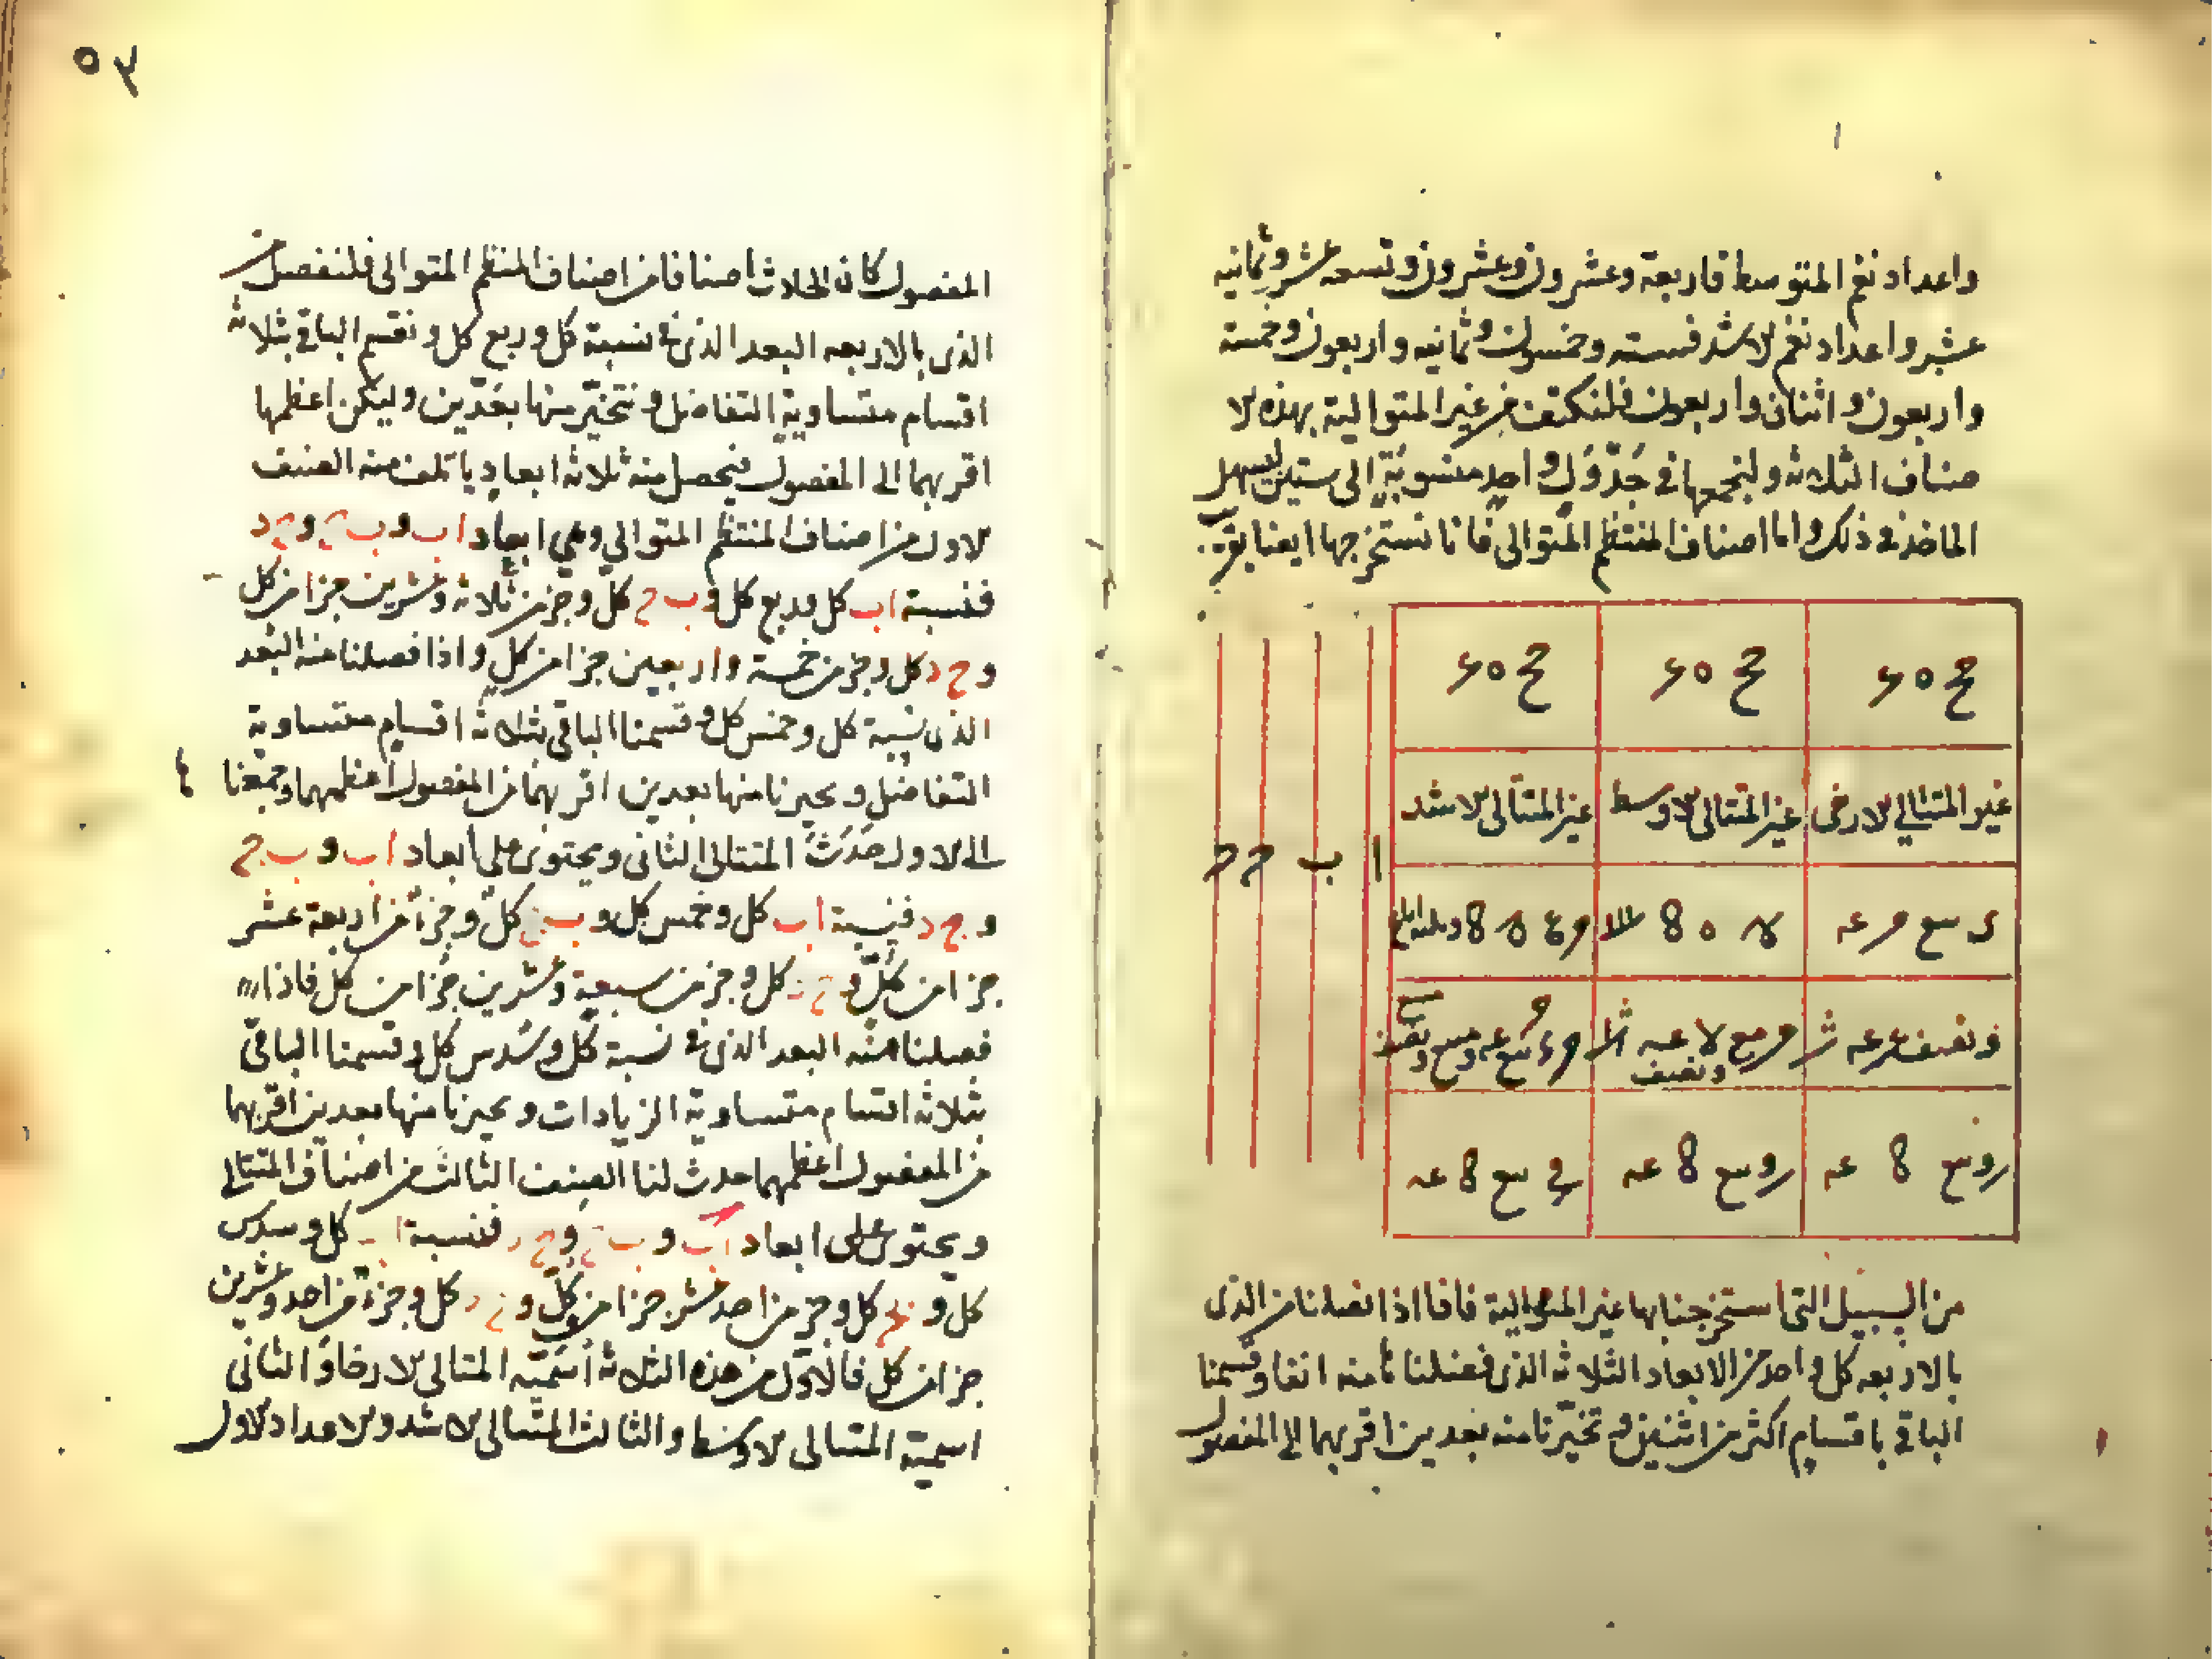 واعداد نغم المتوسط فاربعة وعشرون وعشرون وتسعه عشر وثمانيه
عشر واعداد نغم الاشد فسته وخمسون وثمانيه واربعون وخمسة
واربعون واثنان واربعون فلنكتف من غير المتوالية بهذه الا
صناف الثلاثه ولنجمعها في جَدْوَلٍ واحدٍ منسوبَةٍ الى ستين ليسهل
الماخذ في ذلك واما اصناف المنتظم المتوالى فانا نستخرجها ايضا بقر
غير المتتالي الارخى غير المتتالى الاوسط غير المتتالى الاشد
ا ب ح د
من السبيل التى استخرجنا بها غير المتوالية فانا اذا فصلنا من الذى
بالاربعه كل واحد من الابعاد الثلاثه الذى فصلنا منه انفا وقسمنا
الباقي باقسام اكثر من اثنين وتخيّرنا منه بعدين اقربهما الى المفصول
٥٣
المفصول كان الحادث اصنافا من اصناف المنتظم المتوالى فلنفصل من
الذى بالاربعه البعد الذى في نسبة كل وربع كل ونقسم الباقي بثلاثه
اقسام متساوية التفاضل ونتخيّر منها بعدين وليكن اعظمها
اقربهما الى المفصول فيحصل منه ثلاثه ابعاد ياتلف منه الصنف
الاول من اصناف المنتظم المتوالي وهي ابعاد اب وب ج وج د
فنسبة اب كل وربع كل وب ج كل وجز من ثلاثه وعشرين جزا من كل
وج د كل وجز من خمسة واربعين جزا من كل واذا فصلنا منه البعد
الذى نسبة كل وخمس كل وقسمنا الباقي بثلاثه اقسام متساوية
التفاضل وتخيرنا منها بعدين اقربهما من المفصول اعظمهما وجمعنا
الى الاول حَدَثَ المتتالى الثانى ويحتوى على ابعاد اب وب ج
وج د فنسبة اب كل وخمس كل وب ج كل وجزءٌ من اربعة عشر
جزا من كلّ وج د كل وجز من سبعة وعشرين جزا من كل فاذا
فصلنا منه البعد الذى في نسبة كل وسُدس كل وقسمنا الباقي
بثلاثه اقسام متساوية الزيادات وتخيرنا منها بعدين اقربهما
من المفصول اعظمهما حدث لنا الصنف الثالث من اصناف المتتالى
ويحتوى على ابعاد اب وب ج وج د فنسبة اب كل وسدس
كل وب ج كل وجز من احد عشر جزا من كل وج د كل وجزء من احد وعشرين
جزا من كل فالاول من هذه الثلاثه أسمّيه المتتالى الارخا والثانى
اسميه المتتالى الاوسط والثالث المتتالى الاشد والاعداد الاول